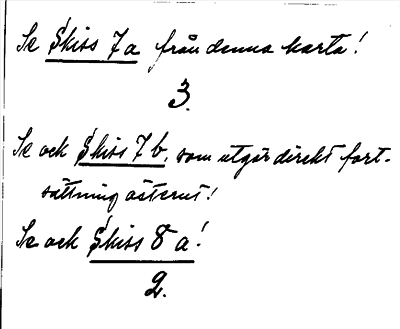 Se Skiss 7a från denna karta!
3.
Se och Skiss 7 b, som utgör direkt fort-
sättning österut!
Se och Skiss 8 a!
2.